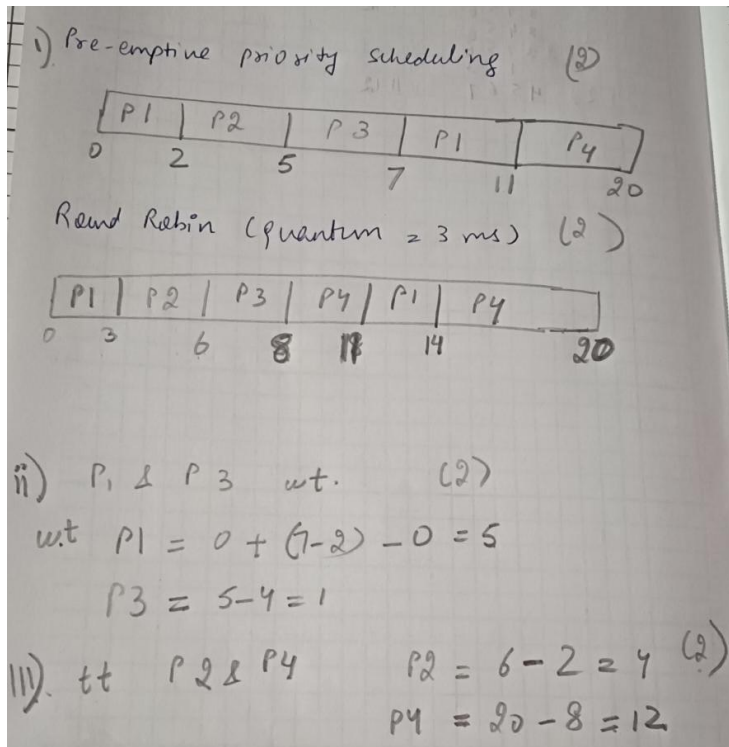 i) Pre-emptive priority scheduling (2)
P1 P2 P3 P1 P4
0 2 5 7 11 20
Round Robin (quantum = 3 ms) (2)
P1 P2 P3 P4 P1 P4
0 3 6 8 11 14 20
ii) P1 & P3 wt. (2)
w.t P1 = 0 + (7-2) - 0 = 5
P3 = 5-4 = 1
III). tt P2 & P4 P2 = 6 - 2 = 4 (2)
P4 = 20 - 8 = 12